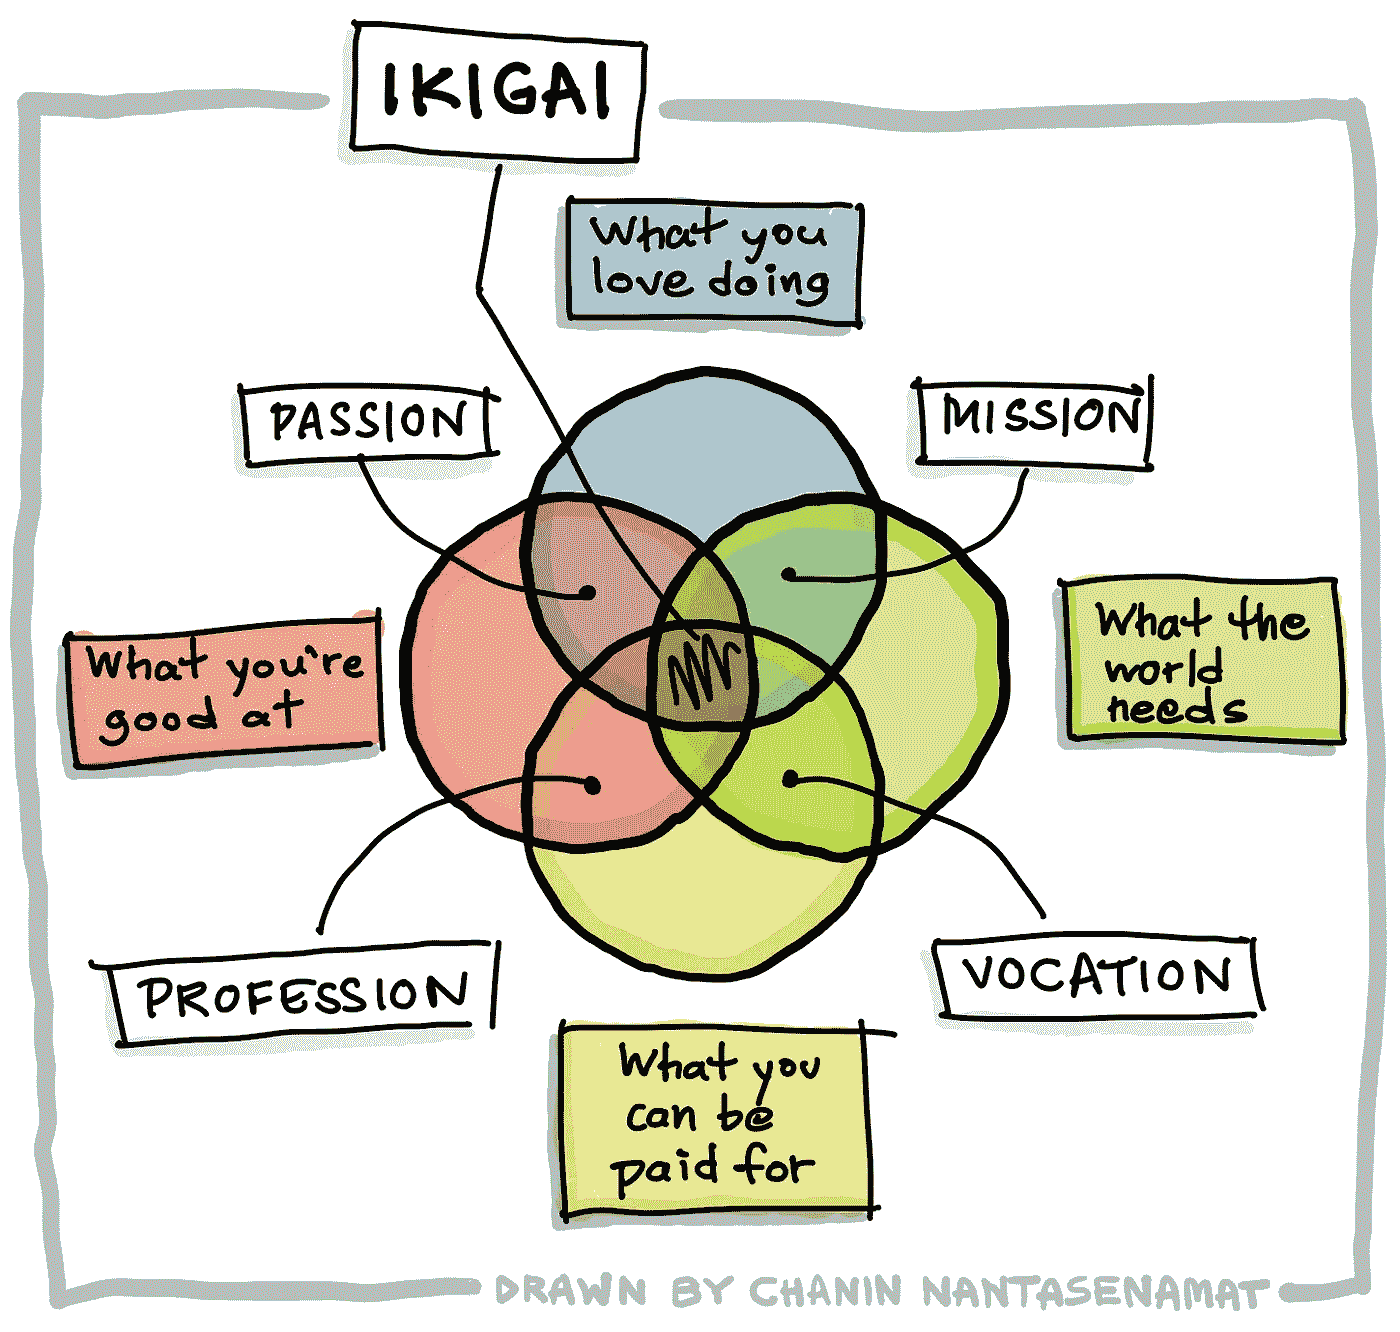 IKIGAI
What you
love doing
PASSION
MISSION
What you're
good at
What the
world
needs
PROFESSION
VOCATION
What you
can be
paid for
DRAWN BY CHANIN NANTASENAMAT